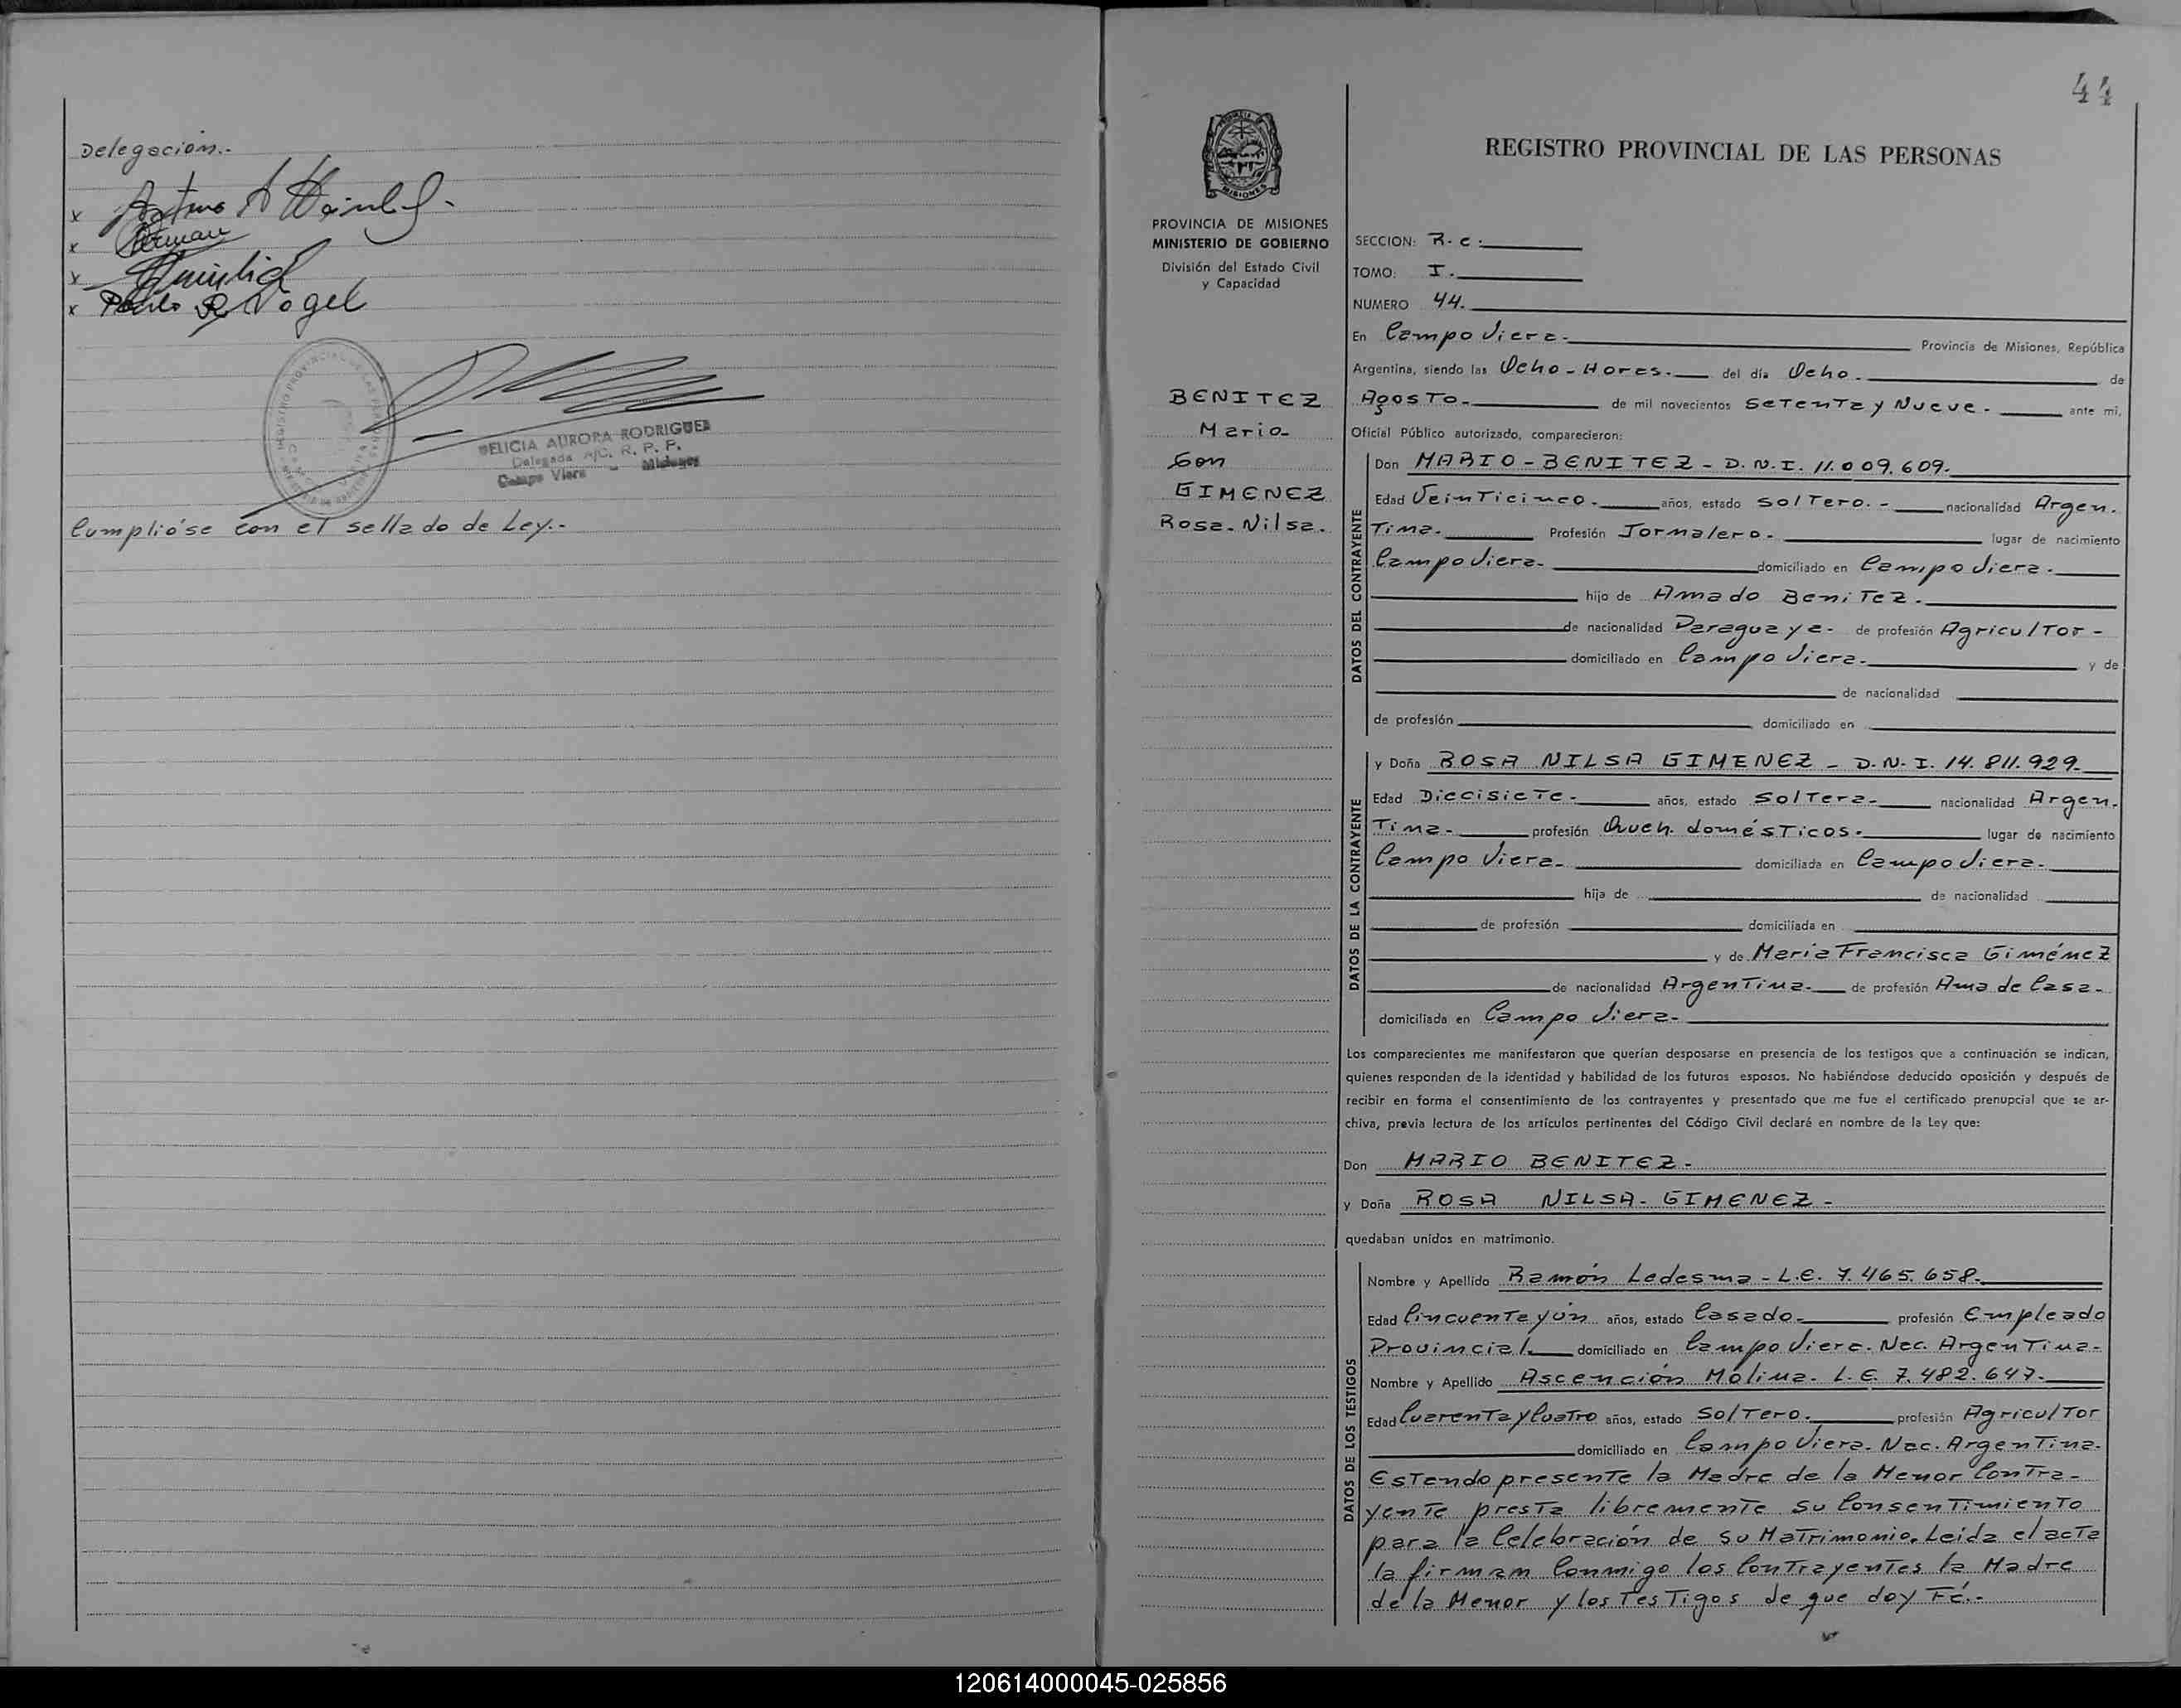 Delegación.-
x Arturo A
x German
x
x Pablo R Vogel
REGISTRO PROVINCIAL DE LAS PERSONAS
DELICIA AURORA RODRIGUEZ
Delegada A/C. R. P. P.
Campo Viera - Misiones
Cumplióse con el sellado de Ley.-
44
PROVINCIA DE MISIONES
MINISTERIO DE GOBIERNO
División del Estado Civil
y Capacidad
BENITEZ
Mario
Con
GIMENEZ
Rosa-Nilsa.
REGISTRO PROVINCIAL DE LAS PERSONAS
SECCION: R.c.
TOMO: I.
NUMERO 44.
En Campo Viera- Provincia de Misiones, República
Argentina, siendo las Ocho-Horas. del día Ocho. de
Agosto- de mil novecientos Setenta y Nueve- ante mí,
Oficial Público autorizado, comparecieron:
DATOS DEL CONTRAYENTE
Don MARIO-BENITEZ-D.N.I. 11.009.609.
Edad Veinticinco- años, estado Soltero.- nacionalidad Argen-
tina. Profesión Jornalero- lugar de nacimiento
Campo Viera- domiciliado en Campo Viera.
hijo de Amado Benitez.
de nacionalidad Paraguaya- de profesión Agricultor-
domiciliado en Campo Viera- y de
de nacionalidad
de profesión domiciliado en
DATOS DE LA CONTRAYENTE
y Doña ROSA NILSA GIMENEZ - D.N.I. 14.811.929
Edad Diecisiete- años, estado Soltera- nacionalidad Argen-
tina- profesión Queh. domésticos. lugar de nacimiento
Campo Viera- domiciliada en Campo Viera.
hija de de nacionalidad
de profesión domiciliada en
y de María Francisca Giménez
de nacionalidad Argentina- de profesión Ama de Casa-
domiciliada en Campo Viera-
Los comparecientes me manifestaron que querían desposarse en presencia de los testigos que a continuación se indican,
quienes responden de la identidad y habilidad de los futuros esposos. No habiéndose deducido oposición y después de
recibir en forma el consentimiento de los contrayentes y presentado que me fue el certificado prenupcial que se ar-
chiva, previa lectura de los artículos pertinentes del Código Civil declaré en nombre de la Ley que:
Don MARIO BENITEZ-
y Doña ROSA NILSA-GIMENEZ-
quedaban unidos en matrimonio.
DATOS DE LOS TESTIGOS
Nombre y Apellido Ramón Ledesma-L.E. 7.465.658.
Edad Cincuenta y ún años, estado Casado- profesión Empleado
Provincial. domiciliado en Campo Viera- Nac. Argentina-
Nombre y Apellido Ascención Molina- L.E. 7.482.647.
Edad Cuarenta y Cuatro años, estado Soltero. profesión Agricultor
domiciliado en Campo Viera- Nac. Argentina.
Estando presente la Madre de la Menor Contra-
yente presta libremente su Consentimiento
para la Celebración de su Matrimonio. Leída el acta
la firman Conmigo los Contrayentes la Madre
de la Menor y los Testigos de que doy Fé.-
120614000045-025856